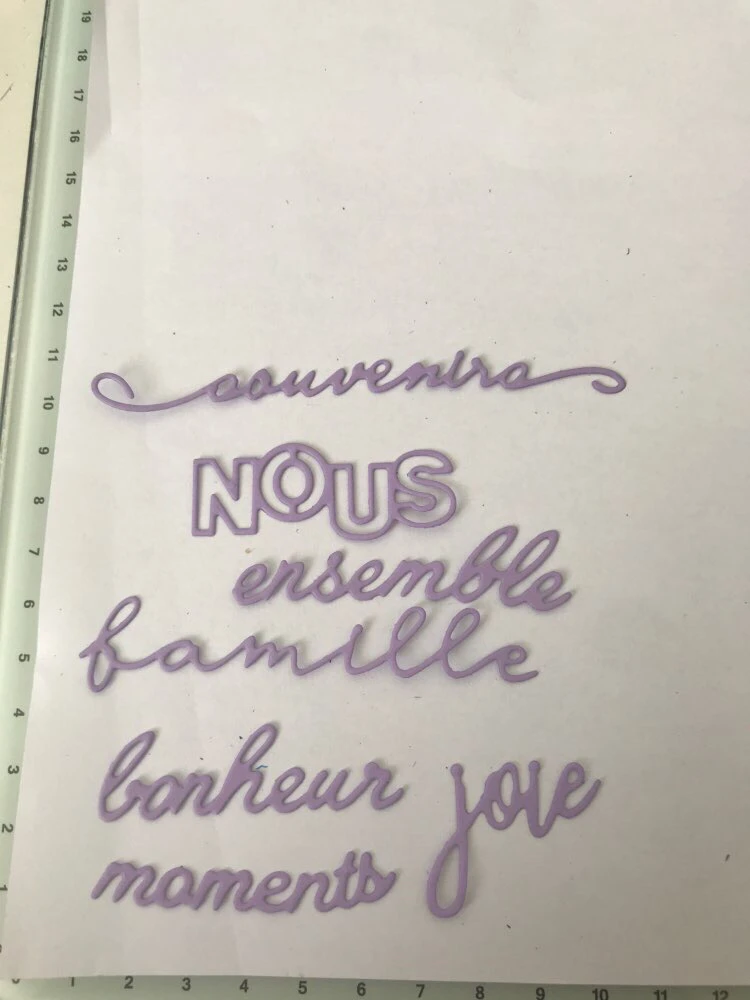 19
18
17
16
15
14
13
12
11
10
9
8
7
6
5
4
3
2
1
souvenirs
NOUS
ensemble
famille
bonheur joie
moments
1 2 3 4 5 6 7 8 9 10 11 12